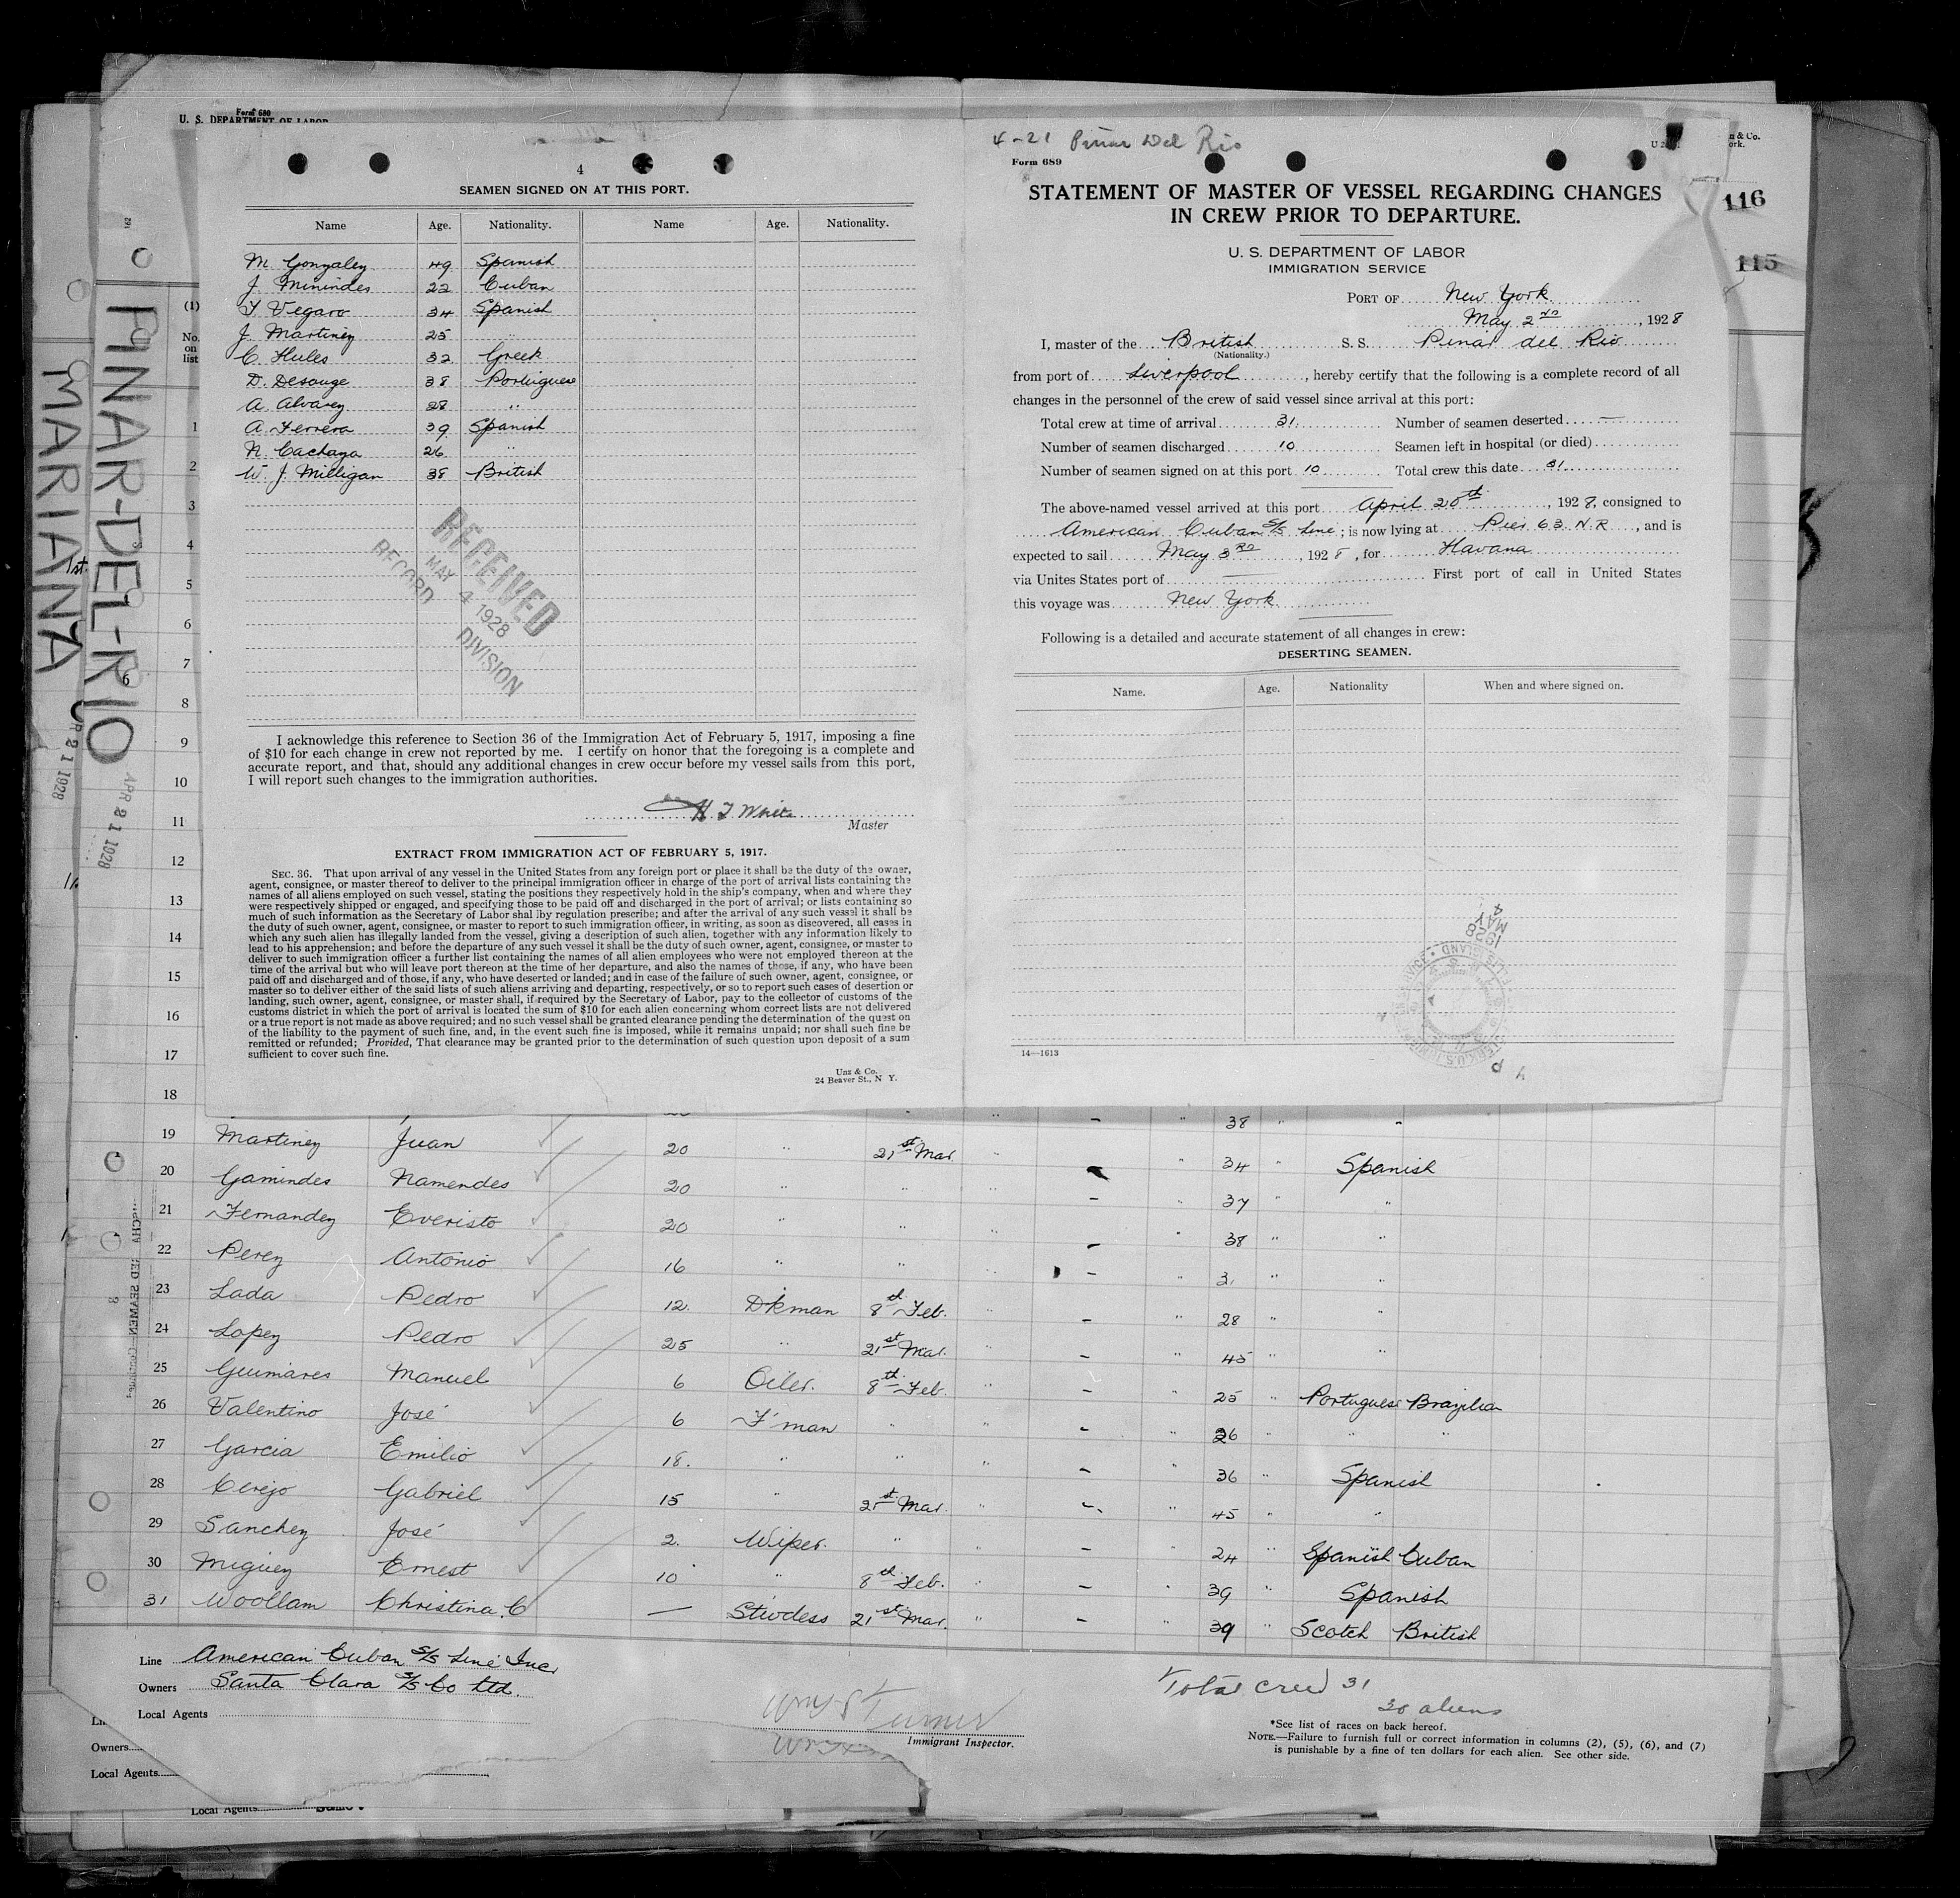 Form 680
U. S. DEPARTMENT OF LABOR
PINAR-DEL-RIO
MARIANA
APR 21 1928
R 21 1928
(1)
No. on list
4
SEAMEN SIGNED ON AT THIS PORT.
Name Age. Nationality. Name Age. Nationality.
M. Gonzalez 49 Spanish
J. Minindes 22 Cuban
T Vegaro 34 Spanish
J. Martinez 25 "
C. Hules 32 Greek
D. Desouge 38 Portuguese
A. Alvarez 28 "
A. Ferrera 39 Spanish
N. Cachaza 26 "
W. J. Milligan 38 British
RECEIVED
MAY 4 1928
RECORD DIVISION
I acknowledge this reference to Section 36 of the Immigration Act of February 5, 1917, imposing a fine
of $10 for each change in crew not reported by me. I certify on honor that the foregoing is a complete and
accurate report, and that, should any additional changes in crew occur before my vessel sails from this port,
I will report such changes to the immigration authorities.
H T White
Master
EXTRACT FROM IMMIGRATION ACT OF FEBRUARY 5, 1917.
SEC. 36. That upon arrival of any vessel in the United States from any foreign port or place it shall be the duty of the owner,
agent, consignee, or master thereof to deliver to the principal immigration officer in charge of the port of arrival lists containing the
names of all aliens employed on such vessel, stating the positions they respectively hold in the ship's company, when and where they
were respectively shipped or engaged, and specifying those to be paid off and discharged in the port of arrival; or lists containing so
much of such information as the Secretary of Labor shal lby regulation prescribe; and after the arrival of any such vessel it shall be
the duty of such owner, agent, consignee, or master to report to such immigration officer, in writing, as soon as discovered, all cases in
which any such alien has illegally landed from the vessel, giving a description of such alien, together with any information likely to
lead to his apprehension; and before the departure of any such vessel it shall be the duty of such owner, agent, consignee, or master to
deliver to such immigration officer a further list containing the names of all alien employees who were not employed thereon at the
time of the arrival but who will leave port thereon at the time of her departure, and also the names of those, if any, who have been
paid off and discharged and of those, if any, who have deserted or landed; and in case of the failure of such owner, agent, consignee, or
master so to deliver either of the said lists of such aliens arriving and departing, respectively, or so to report such cases of desertion or
landing, such owner, agent, consignee, or master shall, if required by the Secretary of Labor, pay to the collector of customs of the
customs district in which the port of arrival is located the sum of $10 for each alien concerning whom correct lists are not delivered
or a true report is not made as above required; and no such vessel shall be granted clearance pending the determination of the quest on
of the liability to the payment of such fine, and, in the event such fine is imposed, while it remains unpaid; nor shall such fine be
remitted or refunded; Provided, That clearance may be granted prior to the determination of such question upon deposit of a sum
sufficient to cover such fine.
Unz & Co.
24 Beaver St., N Y.
4-21 Pinar Del Rio
Form 689
STATEMENT OF MASTER OF VESSEL REGARDING CHANGES
IN CREW PRIOR TO DEPARTURE.
U. S. DEPARTMENT OF LABOR
IMMIGRATION SERVICE
PORT OF New York
May 2nd, 1928
I, master of the British S. S. Pinar del Rio
(Nationality.)
from port of Liverpool, hereby certify that the following is a complete record of all
changes in the personnel of the crew of said vessel since arrival at this port:
Total crew at time of arrival 31. Number of seamen deserted —
Number of seamen discharged 10 Seamen left in hospital (or died)
Number of seamen signed on at this port 10 Total crew this date 31
The above-named vessel arrived at this port April 20th, 1928, consigned to
American Cuban S/S Line; is now lying at Pier 63 N.R, and is
expected to sail May 3RD, 1928, for Havana
via Unites States port of — First port of call in United States
this voyage was New York
Following is a detailed and accurate statement of all changes in crew:
DESERTING SEAMEN.
Name. Age. Nationality When and where signed on.
1928
MAY
4
14—1613
116
115
1
2
3
4
5
6
7
8
9
10
11
12
13
14
15
16
17
18 38 "
19 Martinez Juan 20 " 21st Mar. " — " 34 " Spanish
20 Gamindes Namendes 20 " " " — " 37 "
21 Fernandez Everisto 20 " " — " 38 " "
22 Perez Antonio 16 " " " — " 3. " "
23 Lada Pedro 12. Dkman 8th Feb. " — " 28 " "
24 Lopez Pedro 25 " 21st Mar. — " 45 " "
25 Guimares Manuel 6 Oiler. 8th Feb. " — " 25 " Portuguese Brazilian
26 Valentino José 6 F'man " " — " 26 " "
27 Garcia Emilio 18. " " " — " 36 " Spanish
28 Cerejo Gabriel 15 " 21st Mar. " — " 45 " "
29 Sanchez José 2. Wiper. " — " 24 " Spanish Cuban
30 Miguez Ernest 10 " 8th Feb. " — " 39 " Spanish
31 Woollam Christina. C — Stwdess 21st Mar. " — " 39 " Scotch British
Line American Cuban S/S Line Inc.
Owners Santa Clara S/S Co Ltd.
Local Agents
Turner
Immigrant Inspector.
Total crew 31
30 aliens
*See list of races on back hereof.
NOTE.—Failure to furnish full or correct information in columns (2), (5), (6), and (7)
is punishable by a fine of ten dollars for each alien. See other side.
Owners
Local Agents
Local Agents